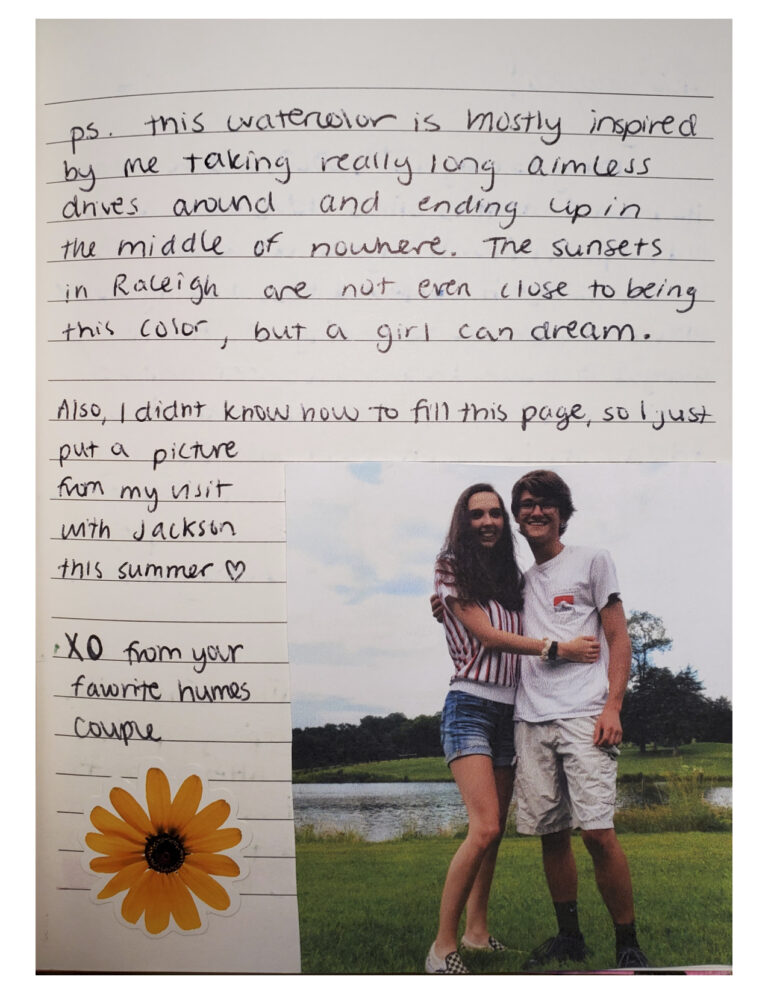 ps. this watercolor is mostly inspired
by me taking really long aimless
drives around and ending up in
the middle of nowhere. The sunsets
in Raleigh are not even close to being
this color, but a girl can dream.
Also, I didnt know how to fill this page, so I just
put a picture
from my visit
with Jackson
this summer ♡
XO from your
favorite humes
couple